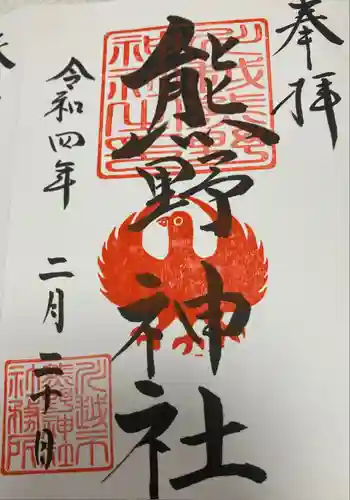 奉拝
川越熊野
神社之印
熊野神社
令和四年二月二十日
川越市
熊野神社
社務所